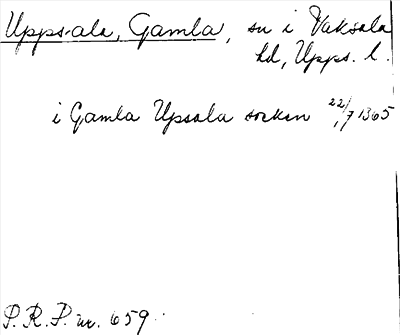 Uppsala, Gamla, sn i Vaksala
hd, Upps. l.
i Gamla Upsala socken 22/7 1365
P. R. P. nr. 659